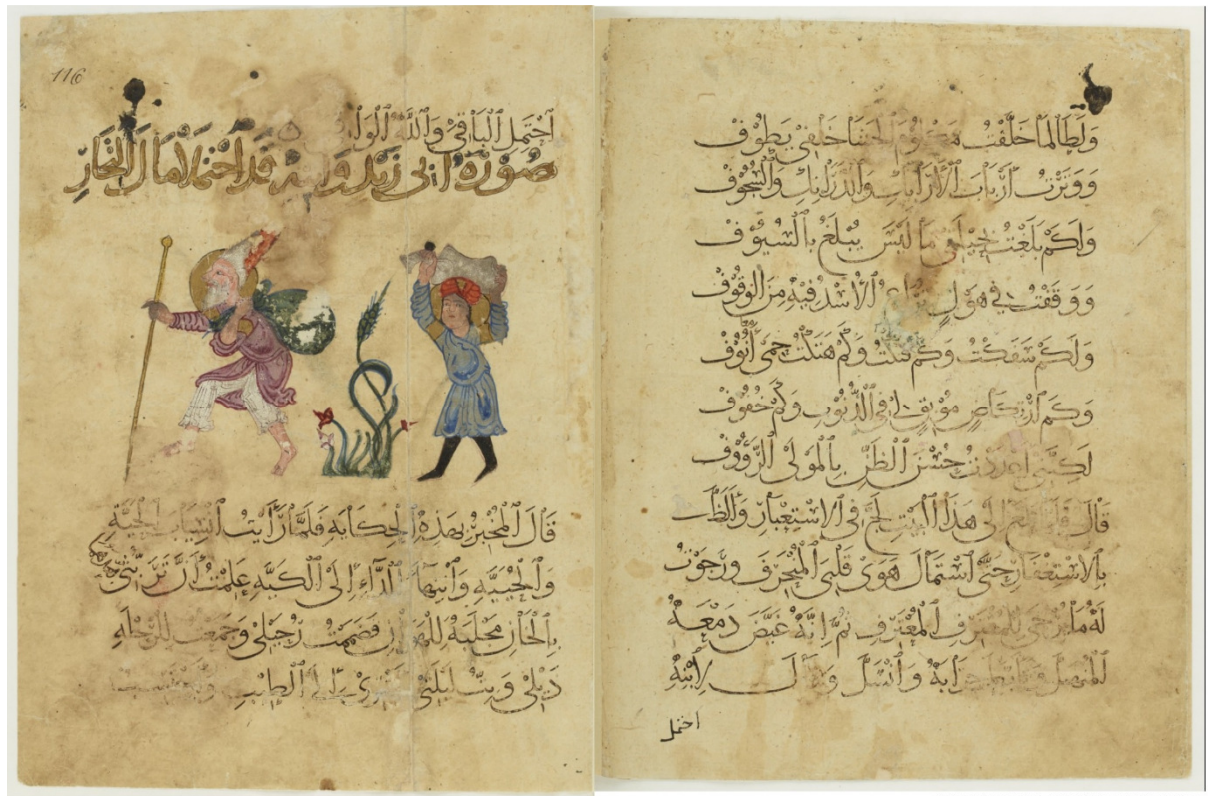 وَلَطَالَمَا خَلَّفْتُ مَكْلُومَ الْحَشَا خَلْفِي يَطُوف
وَوَتَرْتُ أَرْبَابَ الْأَرَائِكِ وَالدَّرَانِكِ وَالسُّجُوف
وَلَكَمْ بَلَغْتُ بِحِيلَتِي مَا لَيْسَ يُبْلَغُ بِالسُّيُوف
وَوَقَفْتُ فِي هَوْلٍ الْأُسْدُ فِيهِ مِنَ الْوُقُوف
وَلَكَمْ سَفَكْتُ وَكَمْ فَتَكْتُ وَكَمْ هَتَكْتُ حِمَى أَنُوف
وَكَم ارْتِكَاضٍ مُوبِقٍ لي فِي الذُّنُوبِ وَكَمْ خُفُوف
لَكِنَّنِي اعْدَدْتُ حُسْنَ الظَّنِّ بِالْمَوْلَى الرَّؤُوف
قَالَ فَلَمَّا إِلَى هَذَا الْبَيْتِ لَجَّ فِي الِاسْتِعْبَارِ وَأَلَظَّ
بِالِاسْتِغْفَارِ حَتَّى اسْتَمَالَ هَوَى قَلْبِي الْمُنْحَرِفِ وَرَجَوْتُ
لَهُ مَا يُرْجَى لِلْمُقْتَرِفِ الْمُعْتَرِفِ ثُمَّ إِنَّهُ غَيَّضَ دَمْعَهُ
الْمُنْهَلَّ وَتَأَبَّطَ جِرَابَهُ وَانْسَلَّ وَقَالَ لِابْنِهِ
احتمل
116
احْتَمِلِ الْبَاقِيَ وَاللَّهُ
صُورَة ابي زَيْد وابنه قَد احْتَمَلا مَالَ الْخَانِ
قَالَ الْمُخْبِرُ بِهَذِهِ الْحِكَايَةِ فَلَمَّا رَأَيْتُ انْسِيَابَ الْحَيَّةِ
وَالْحُيَيَّةِ وَانْتِهَاءَ الدَّاءِ إِلَى الْكَيَّةِ عَلِمْتُ أَنَّ تَرَبُّثِي
بِالْخَانِ مَجْلَبَةٌ لِلْهَوَانِ فَضَمَمْتُ رُحَيْلِي وَجَمَعْتُ لِلرِّحْلَةِ
ذَيْلِي وَبِتُّ لَيْلَتِي أَسْرِي إِلَى الطِّيبِ